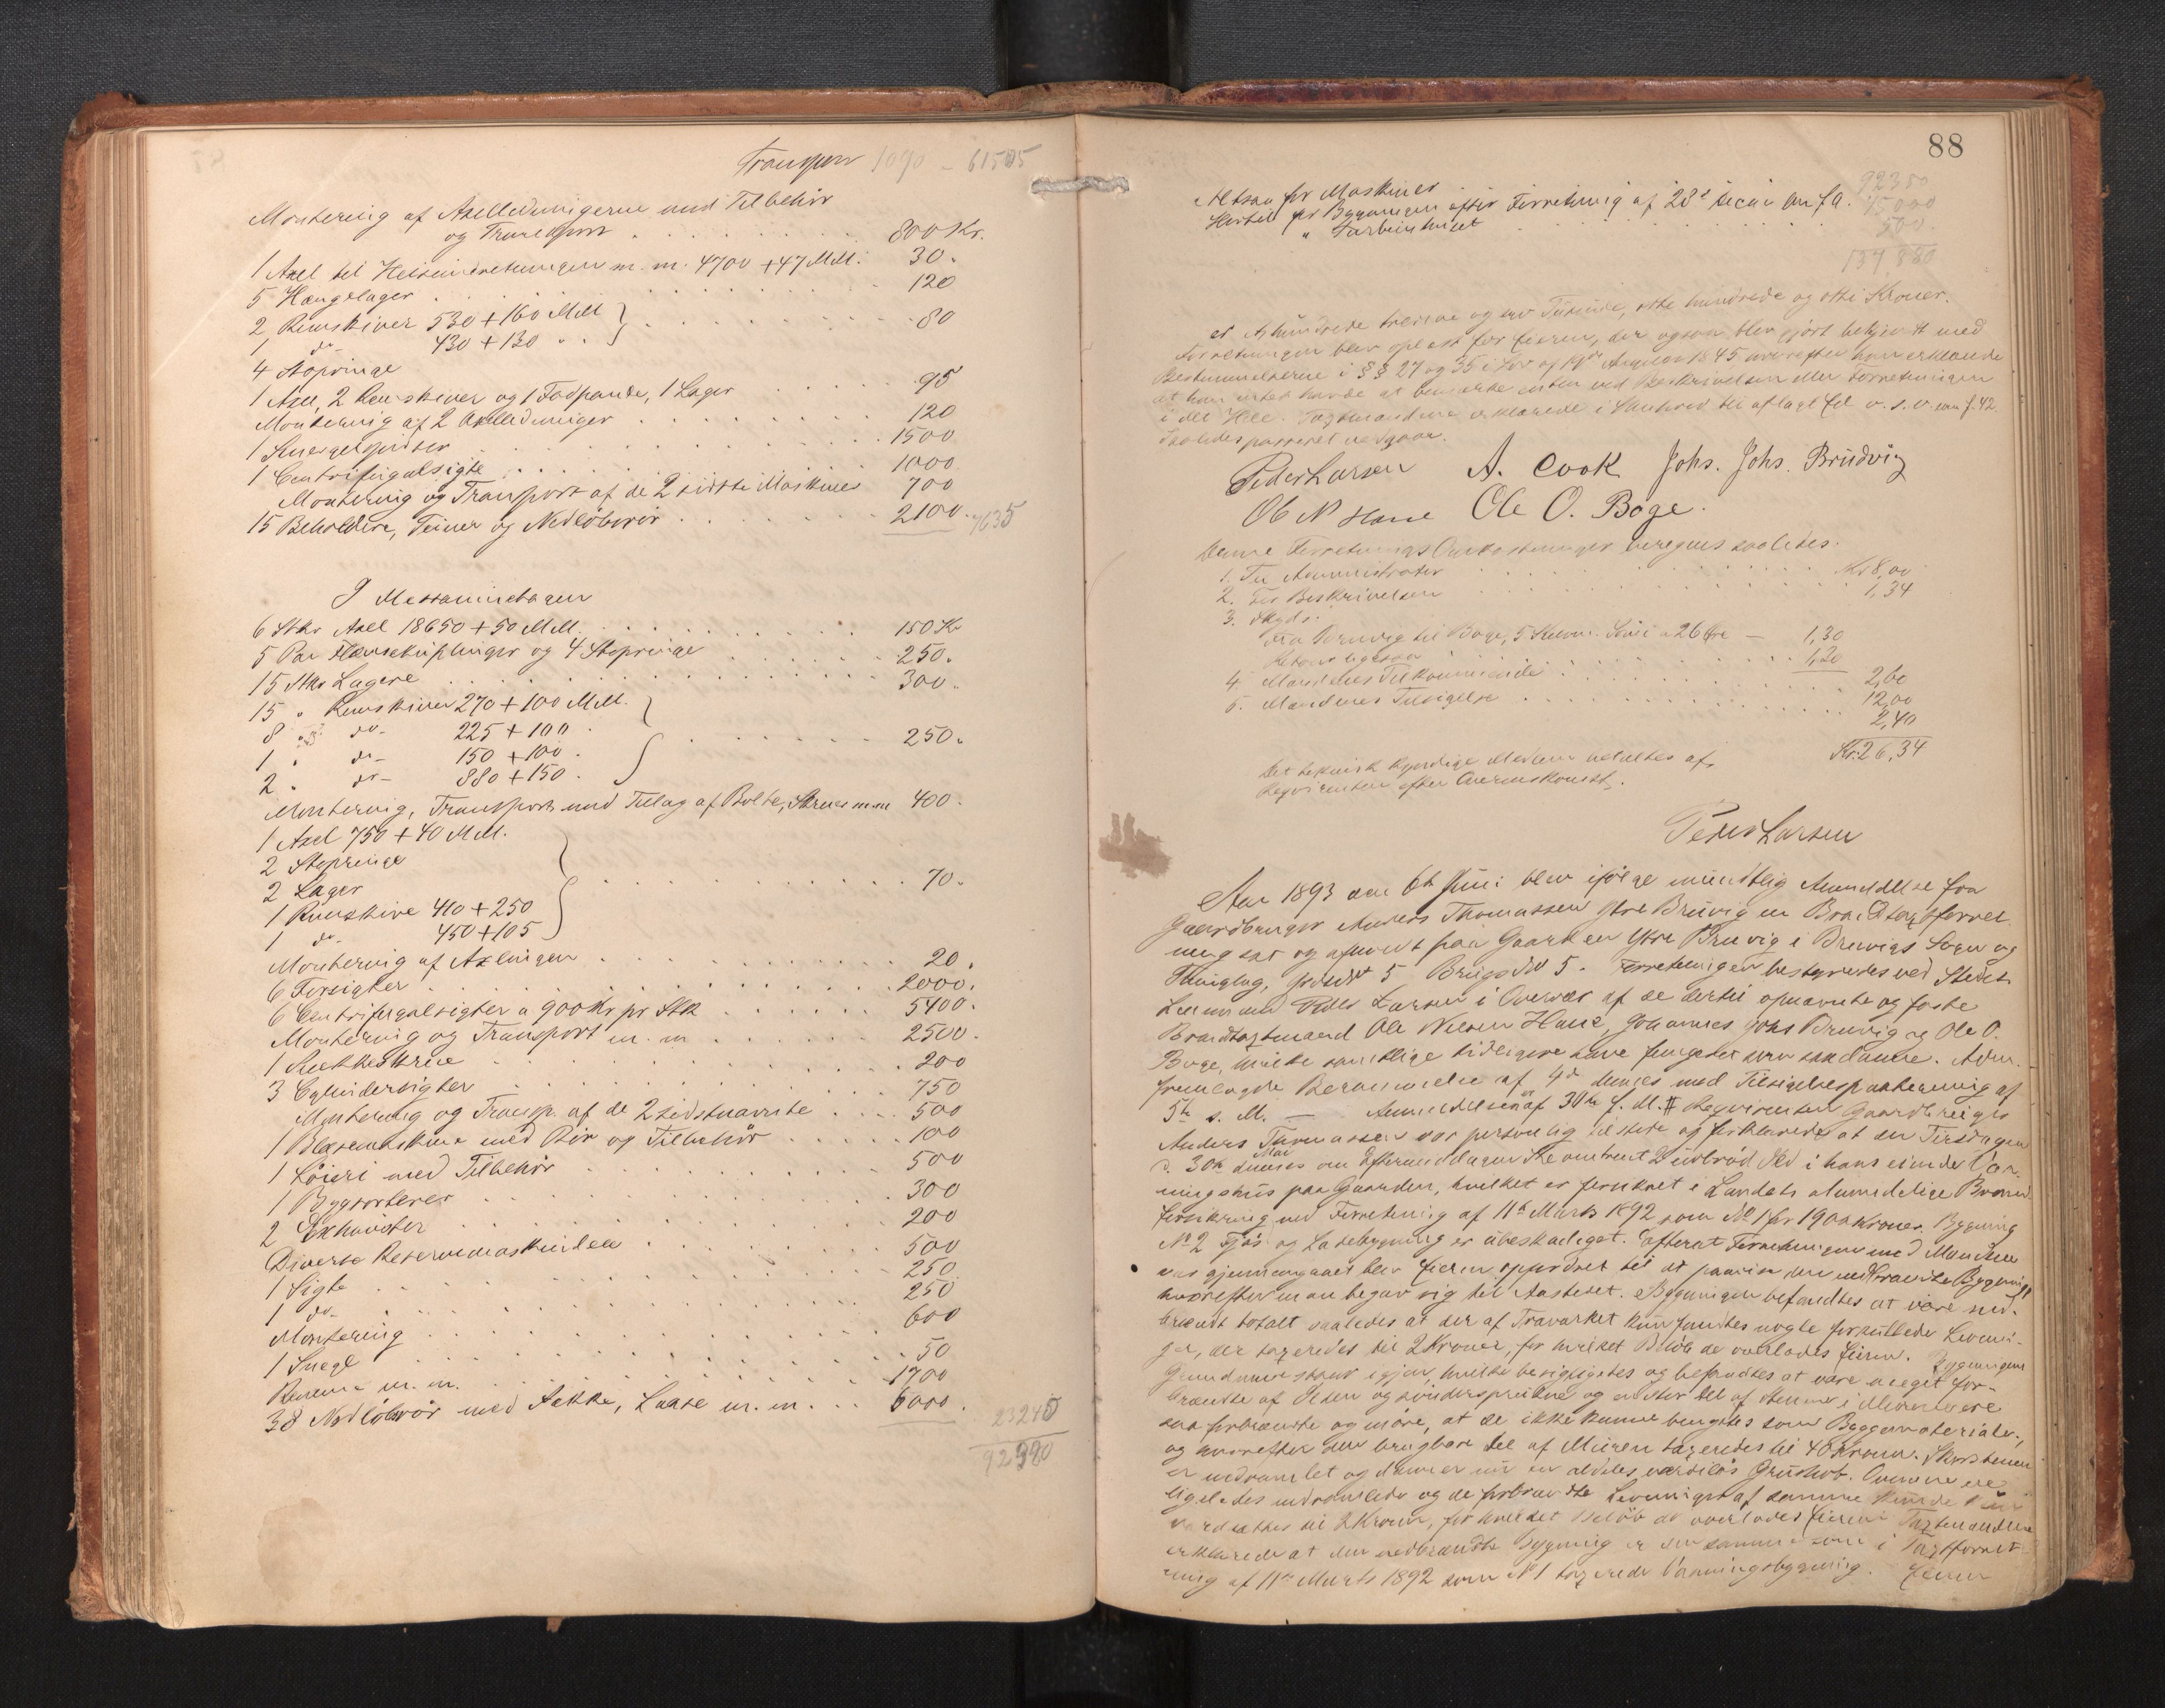 Transport 1090 - 61505
Montering af Axelledningerne med Tilbehör
og Transport . . . 800 Kr.
1 Axel til Heiseindretningen m.m. 4700 + 47 MM. 30.
5 Hængelager . . . 120
2 Remskiver 530 + 160 MM
1 do- 430 + 130 " . . . 80
4 Stopringe
1 Axel, 2 Remskiver og 1 Fodpande, 1 Lager . . . 95
Montering af 2 Axelledninger . . . 120
1 . . . 1500
1 Centrifugalsigte . . . 1000
Montering og Transport af de 2 sidste Maskiner 700
15 Beholdere, Teiner og Nedlöbsrör . . . 2100. 7635
I Messaninetagen
6 Stkr Axel 18650 + 50 MM. . . . 150 Kr
5 Par Flansekuplinger og 4 Stopringe . . . 250.
15 Stkr Lagere . . . 300.
15 " Remskiver 270 + 100 MM.
8 " do- 225 + 100 .
1 " do- 150 + 100 . . . . 250.
2 " do- 880 + 150 .
Montering, Transport med Tillæg af Bolte, Skruer m m 400.
1 Axel 750 + 40 MM.
2 Stopringe
2 Lager . . . 70.
1 Remskive 410 + 250
1 do- 450 + 105
Montering af Axlingen . . . 20.
6 Forsigter . . . 2000.
6 Centrifugalsigter a 900 Kr pr Stk . . . 5400.
Montering og Transport m. m . . . 2500.
1 . . . 200
3 Cylindersigter . . . 750
Montering og Transp. af de 2 sidstnævnte . . . 500
1 Blæsemaskine med Rör og Tilbehör . . . 100
1 Löieri med Tilbehör . . . 500
1 Bygsorterer . . . 300
2 Exhaustor . . . 200
Diverse Reservemaskindele . . . 500
1 Sigte . . . 250
1 do- . . . 250
Montering . . . 600
1 Snegl . . . 50
Remme m. m. . . . 1700
38 Nedlöbsrör med Sække, Laase m. m. . . 5000. 23245
92380
88
Altsaa for Maskiner . . . 92380
Hertil for Bygningen efter Forretning af 28de f. A. 45000
" Turbinhuset . . . 500.
137,880
er Et hundrede tredive og syv Tusinde, otte hundrede og otti Kroner.
Forretningen blev oplæst for Eieren, der ogsaa blev gjort bekjendt med
Bestemmelserne i §§ 27 og 35 i Lov af 19de August 1845 hvorefter han erklærede
at han intet havde at bemærke enten ved Beskrivelsen eller Forretningen
i det Hele. Taxtmændene erklærede i Henhold til aflagt Ed o. s. v. f. 42.
Saaledes passeret vedgaaes.
Peder Larsen A. Cook Johs. Johs. Brudvig
Ole N Hane Ole O. Boge.
Denne Forretnings Omkostninger beregnes saaledes.
1. Til Administrator . . . Kr 8,00
2. For Beskrivelsen . . . 1,34
3. Skyds:
Fra Bruvig til Boge, 5 a 26 Öre - 1,30
Retour ligesaa . . . 1,30
2,60
4. Mændenes Tilkommende . . . 12,00
5. Mændenes Tilsigelse . . . 2,40
Kr. 26,34
Det teknisk kyndige Medlem udbetales af
Reqvirenten efter Overenskomst.
Peder Larsen
Aar 1893 den 6te Juni blev ifölge mundtlig Anmeldelse fra
Gaardbruger Anders Thomassen Ytre Bruvig en Brandtaxtforret-
ning sat og afholdt paa Gaarden Ytre Bruvig i Bruvigs Sogn og
Thinglag, Gaards No 5 Brugs No 5. Forretningen bestyredes ved Stedets
Lensmand Peder Larsen i Overvær af de dertil opnævnte og faste
Brandtaxtmænd Ole Nilsen Hane, Johannes Johs Bruvig og Ole O.
Boge, hvilke samtlige tidligere have fungeret som saadanne. Adm.
fremlagde Berammelse af 4de dennes med Tilsigelsespaategning af
5te s. M. — Anmeldelsen er af 30te f. M. Reqvirenten Gaardbruger
Anders Thomassen var personlig tilstede og forklarede at der Tirsdagen
d. 30te Mai om Eftermiddagen Kl. omtrent 2 udbröd Ild i hans eiende Vaa-
ningshus paa Gaarden, hvilket er forsikret i Landets almindelige Brand-
forsikring ved Forretning af 11te Marts 1892 som No 1 for 1900 Kroner. Bygning
No 2 Fjös og Ladebygning er ubeskadiget. Efterat Forretningen med Mændene
var gjennemgaaet blev Eieren opfordret til at paavise den nedbrændte Bygning,
hvorefter man begav sig til Aastedet. Bygningen befandtes at være ned-
brændt totalt saaledes at der af Træværket kun fandtes nogle forkullede Levnin-
ger, der taxeredes til 2 Kroner, for hvilket Belöb de overlodes Eieren. Bygningens
Grundmur stod igjen, hvilke besigtigedes og befandtes at være meget for-
brændte af Ilden og söndersprukne og en stor Del af Stenene i Murene ere
saa forbrændte og möre, at de ikke kunne benyttes som Byggematerialer,
og hvorefter den brugbare Del af Muren taxeredes til 40 Kroner. Skorstenen
er nedramlet og danner nu en aldeles værdilös Grushob. Ovnene ere
ligeledes nedramlede og de forbrændte Levninger af samme kunde kun
værdsættes til 2 Kroner, for hvilket Belöb de overlodes Eieren. Taxtmændene
erklærede at den nedbrændte Bygning er den samme som i Taxtforret-
ning af 11te Marts 1892 som No 1 taxerede Vaaningsbygning. Eieren